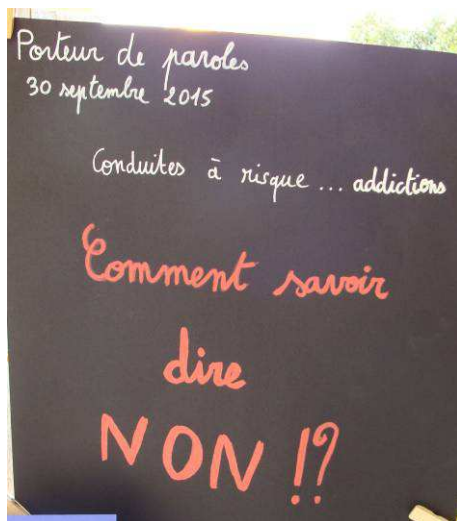 Porteur de paroles
30 septembre 2015
Conduites à risque ... addictions
Comment savoir
dire
NON !?